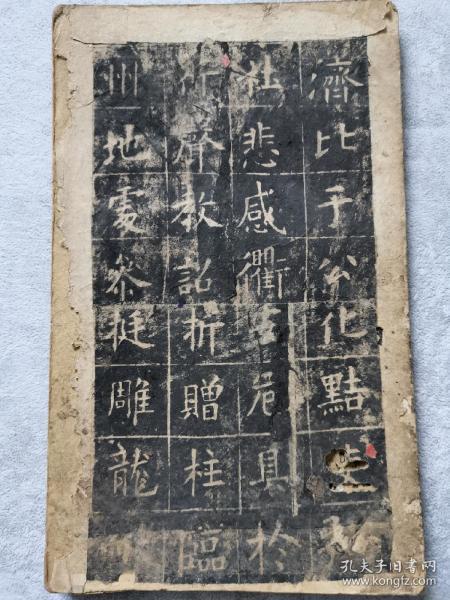 濟比于公化黠吏
社悲感衢危具於
教詔折贈柱臨
州地處參挺雕龍
孔夫子旧书网
www.kongfz.com